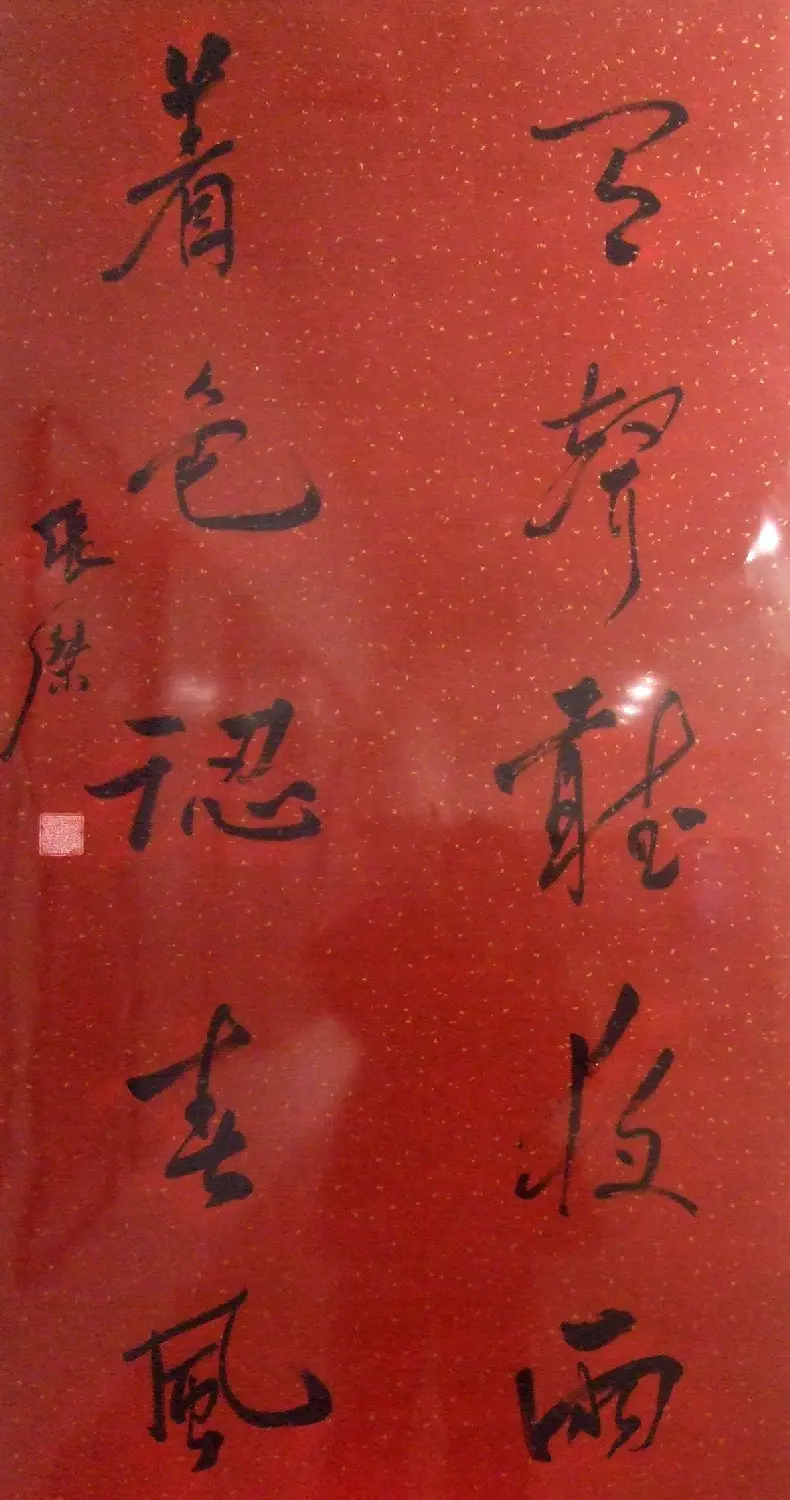 有聲聽夜雨
着色認春風
張傑